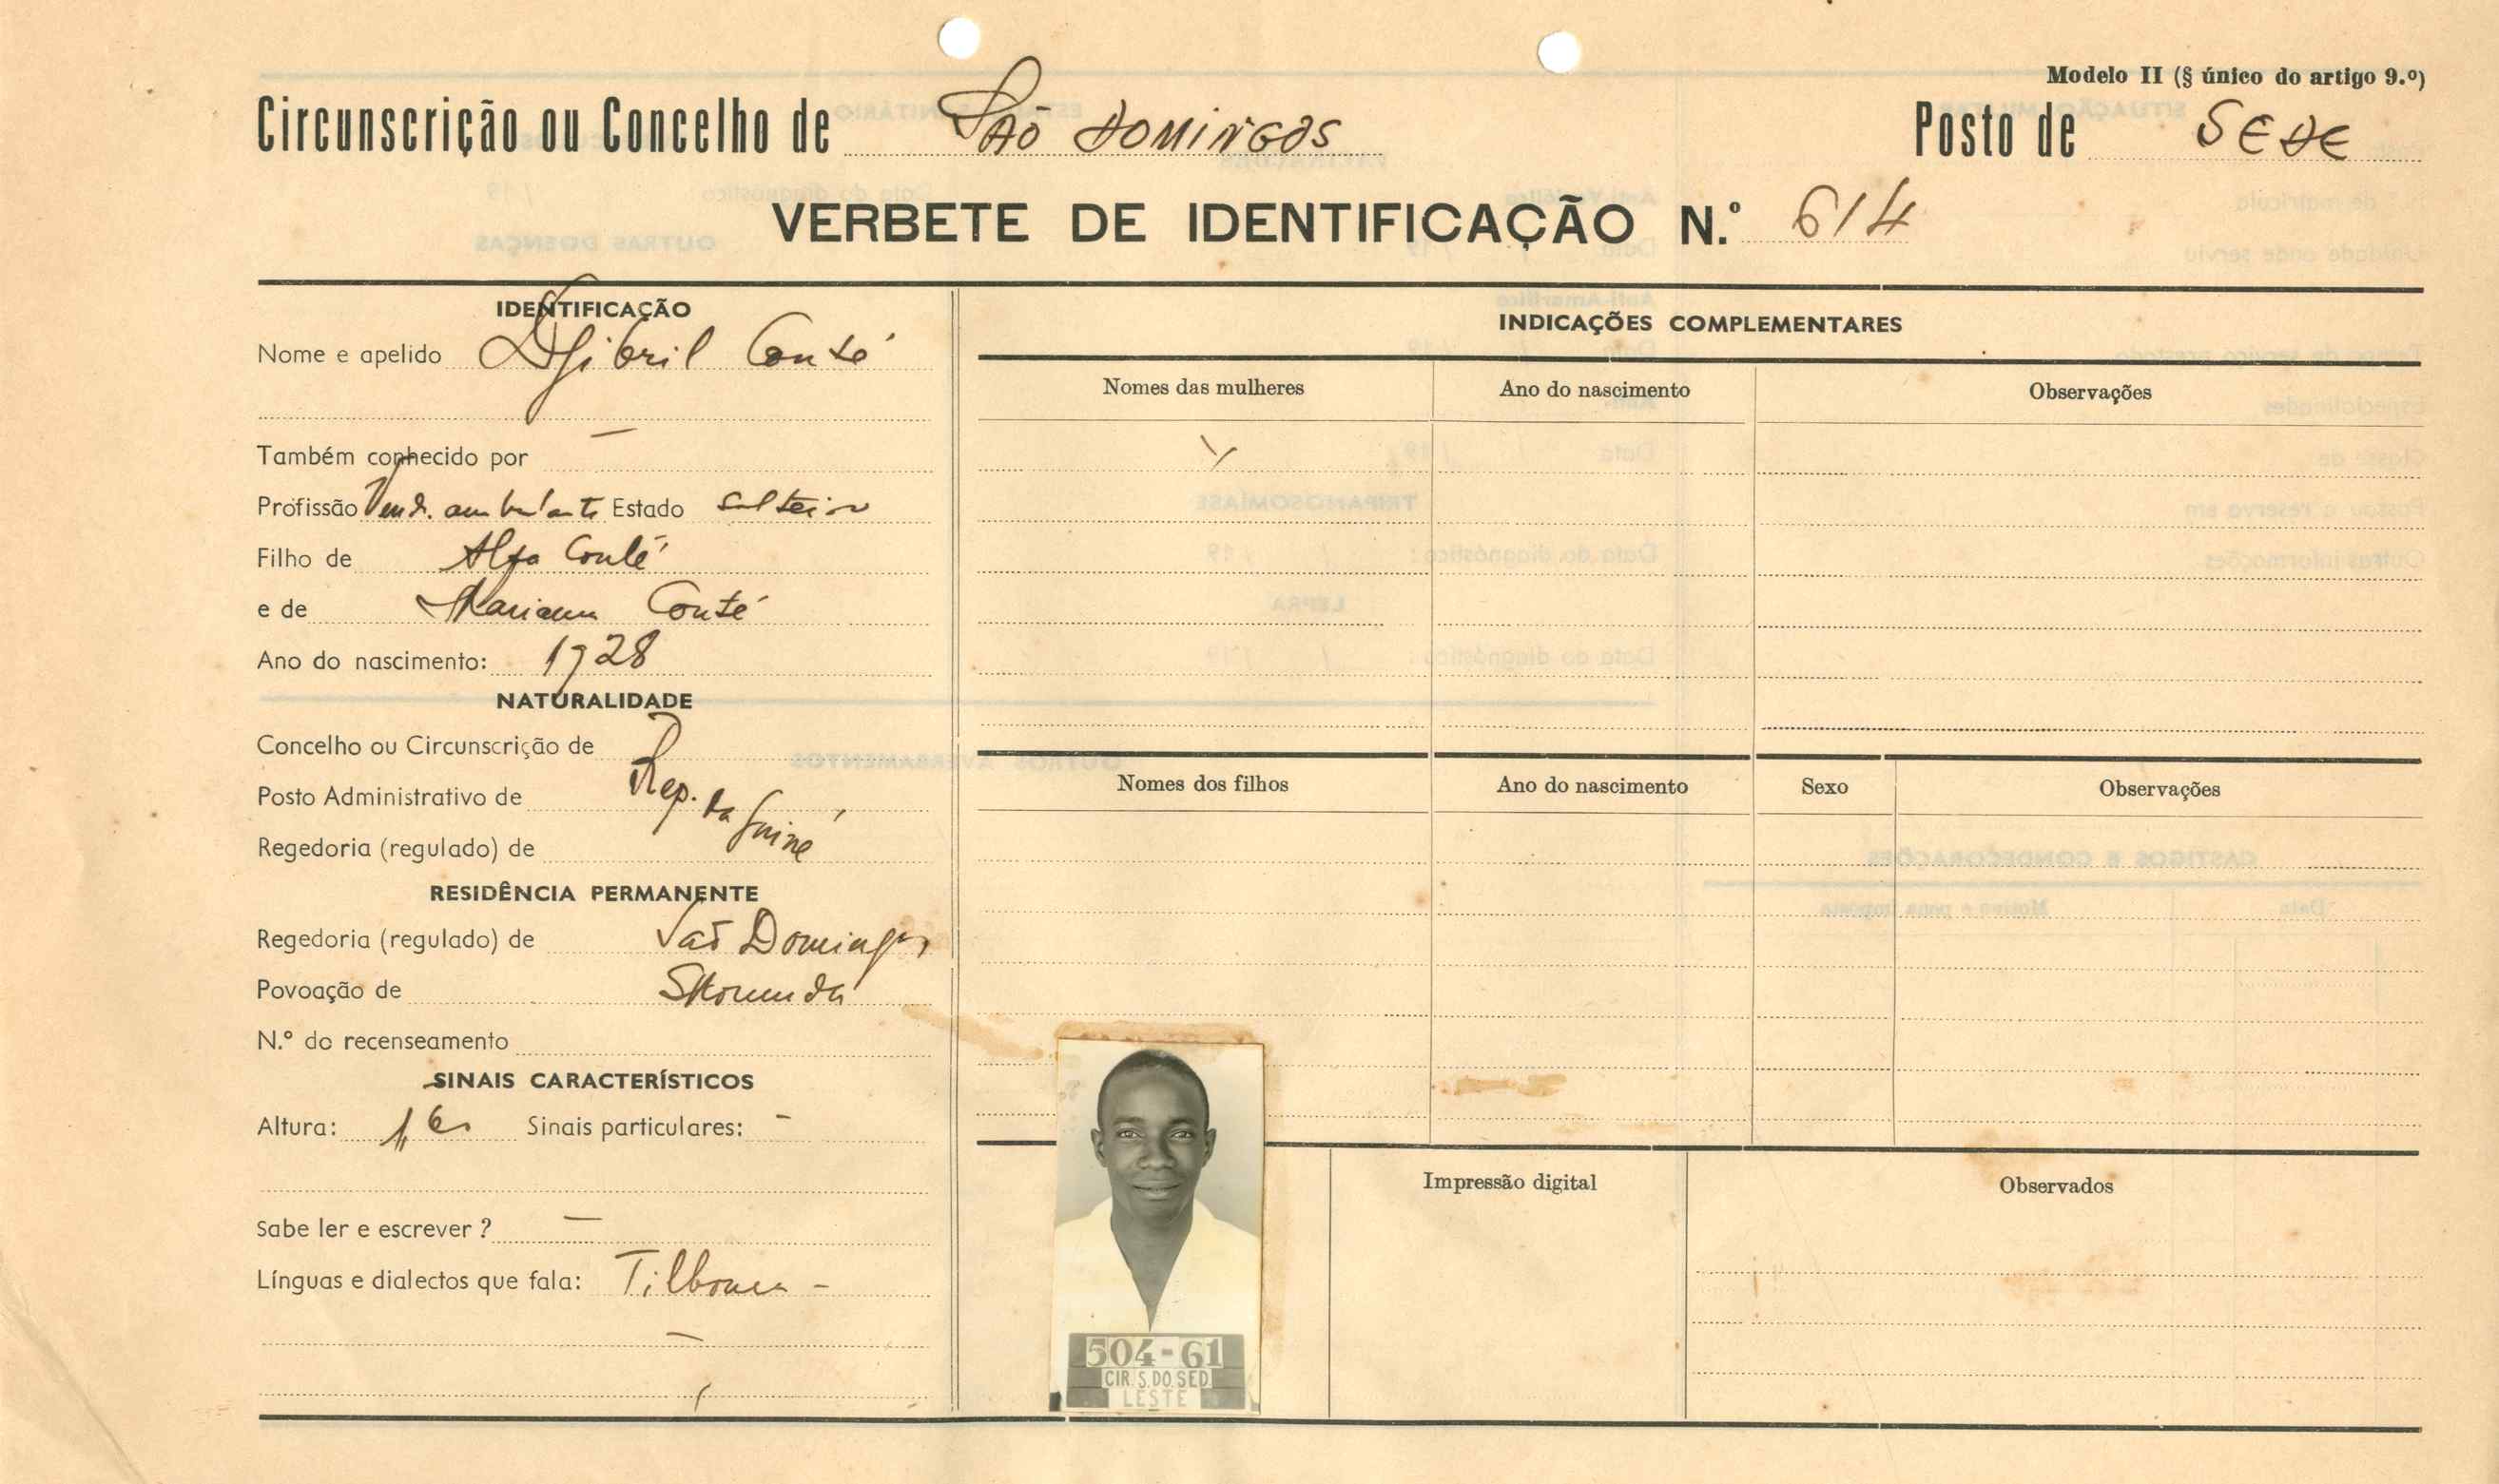 Modelo II (§ único do artigo 9.º)
Circunscrição ou Concelho de SÃO DOMINGOS Posto de SEDE
VERBETE DE IDENTIFICAÇÃO N.º 614
IDENTIFICAÇÃO
Nome e apelido Djibril Conté
Também conhecido por —
Profissão Vend. ambulante Estado Solteiro
Filho de Alfa Conté
e de Mariama Conté
Ano do nascimento: 1928
NATURALIDADE
Concelho ou Circunscrição de
Posto Administrativo de Rep. da Guiné
Regedoria (regulado) de
RESIDÊNCIA PERMANENTE
Regedoria (regulado) de São Domingos
Povoação de
N.º do recenseamento
SINAIS CARACTERÍSTICOS
Altura: Sinais particulares: -
Sabe ler e escrever ? —
Línguas e dialectos que fala:
INDICAÇÕES COMPLEMENTARES
Nomes das mulheres Ano do nascimento Observações
Nomes dos filhos Ano do nascimento Sexo Observações
Impressão digital Observados
504-61
CIR.S.DO.SED.
LESTE